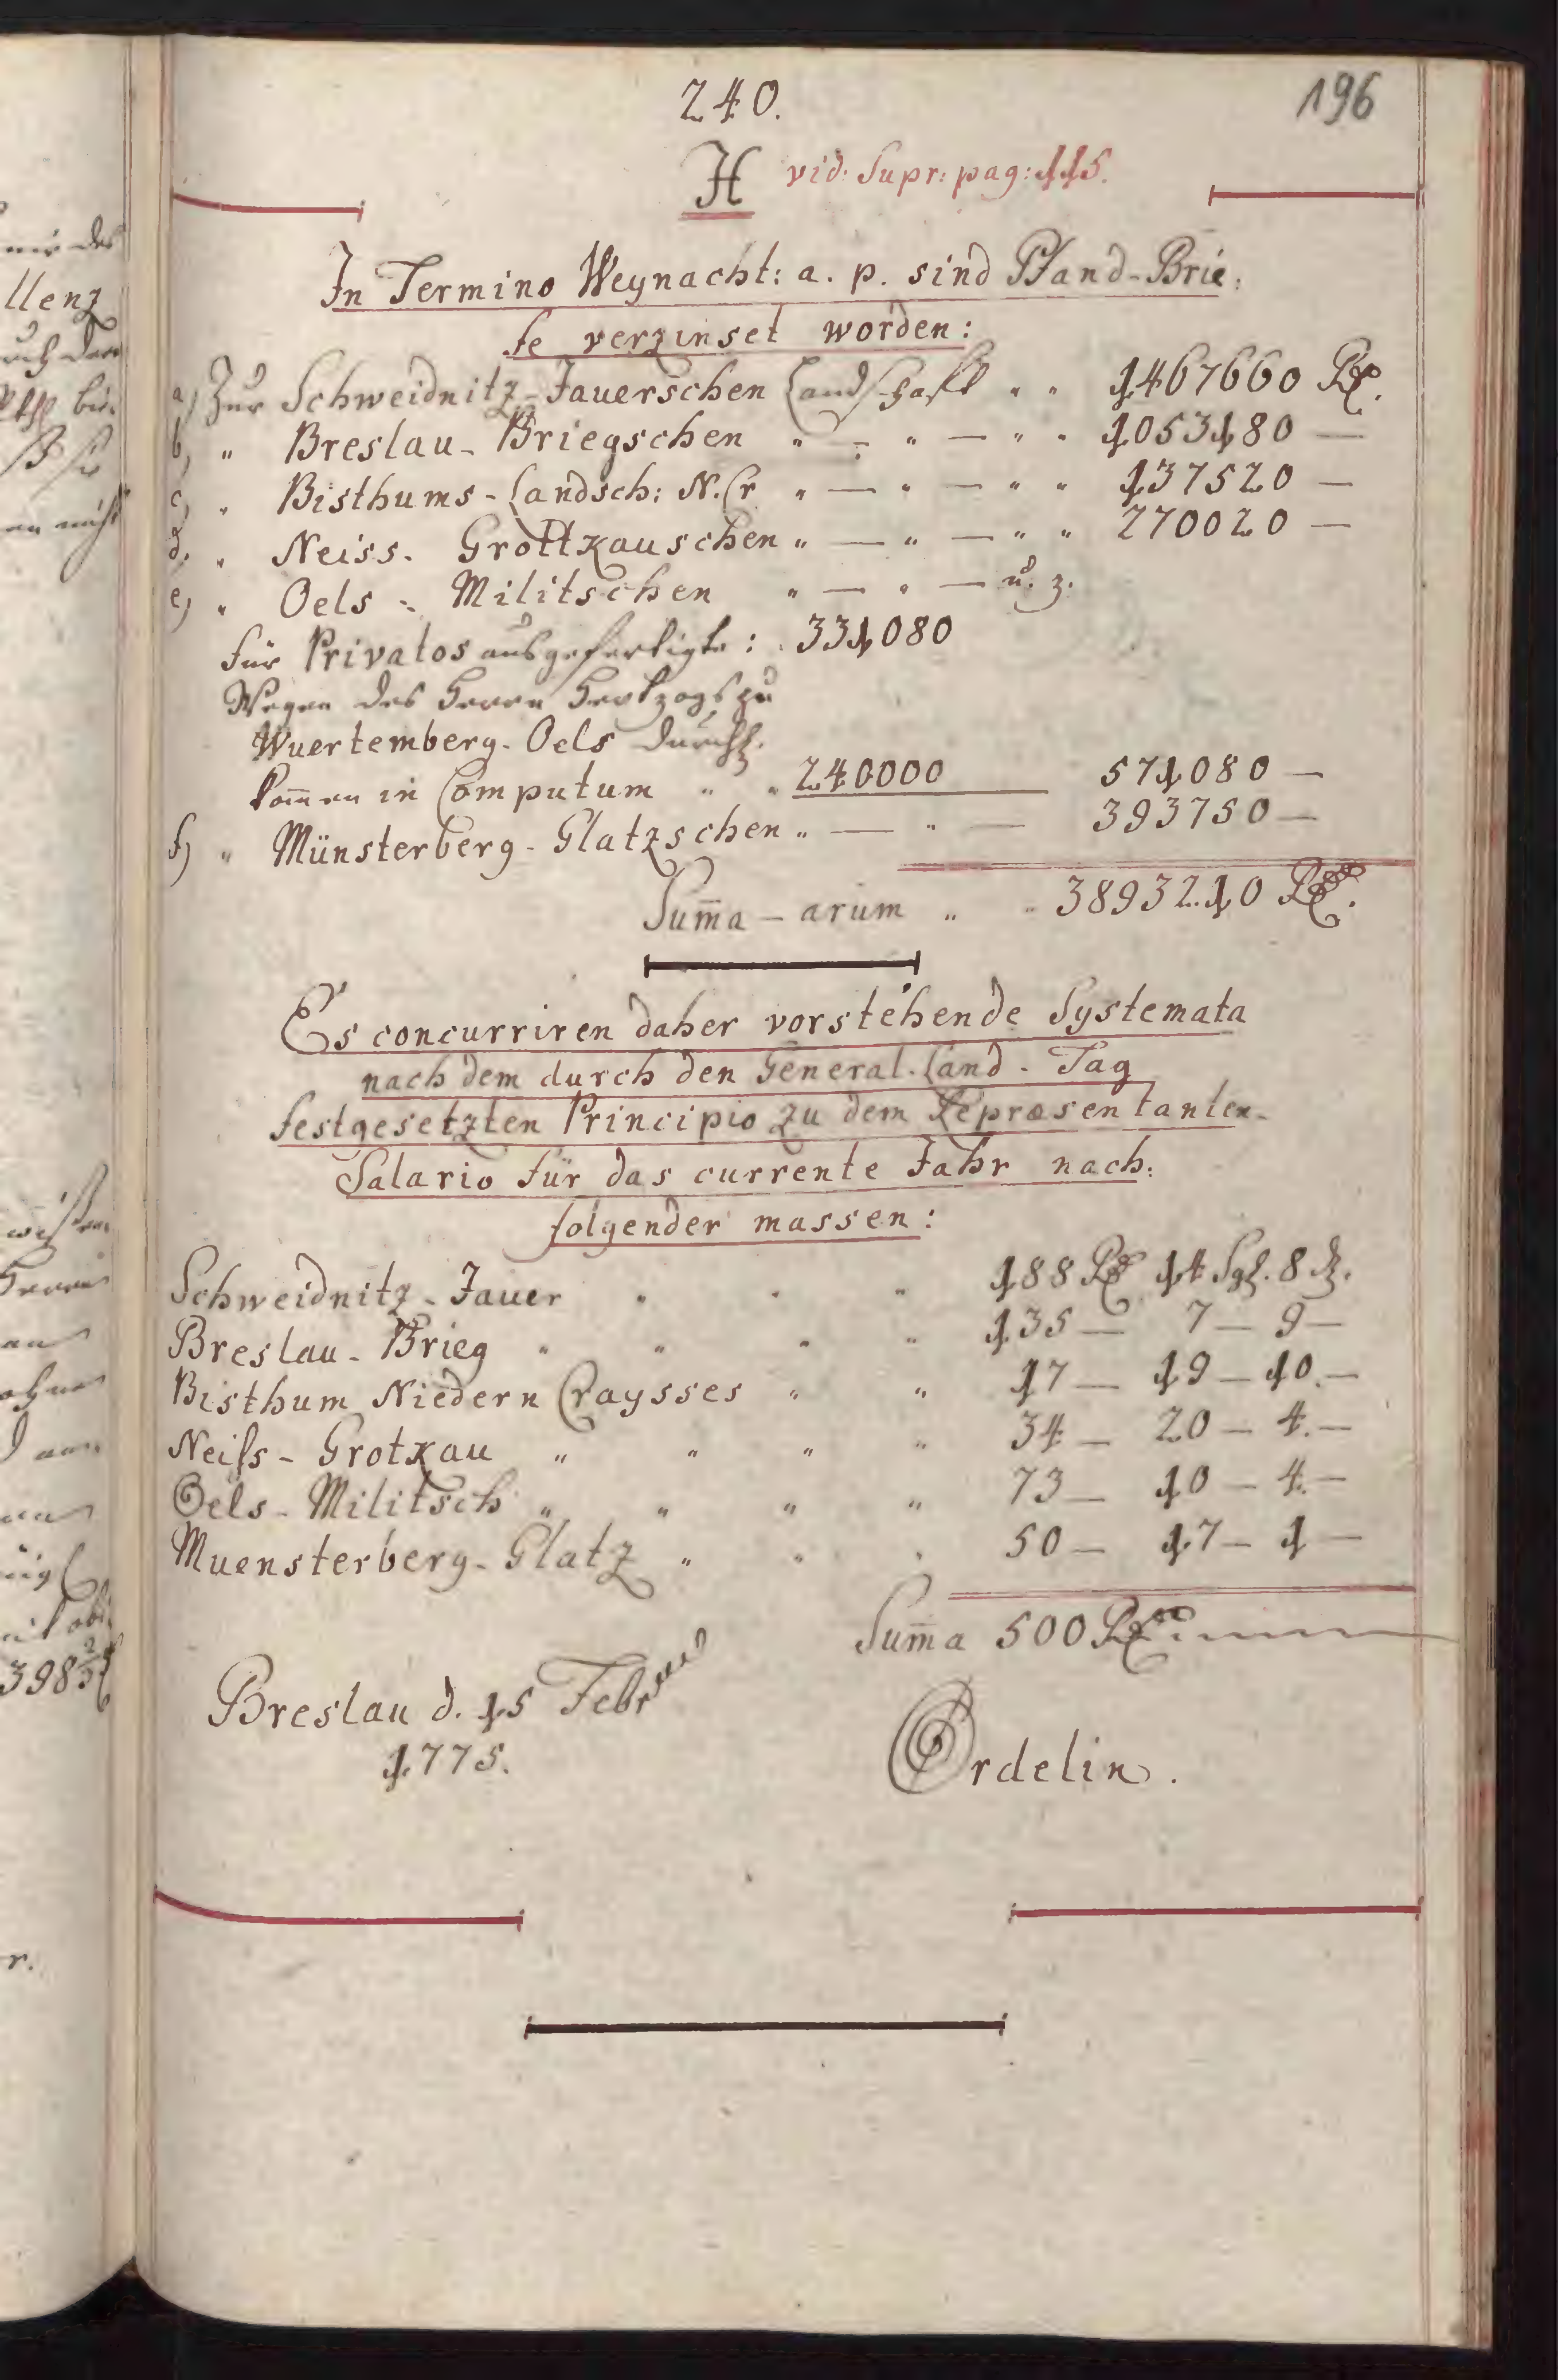 240.
196
H vid. Supr: pag: 115.
In Termino Weynacht: a. p. sind Pfand-Brie-
fe verzinset worden:
a) Zur Schweidnitz-Jauerschen Landschafft " " 1467660 Rx.
b) " Breslau-Briegschen " — " — " " 1053180 —
c) " Bisthums-Landsch: N. Cr " — " — " " 137520 —
d. " Neiss. Grottkauschen " — " — " " 270020 —
e) " Oels - Militschen " — " — u. z.
für Privatos ausgefertigte: 331080
Wegen des Herrn Hertzogs zu
Wuertemberg-Oels Durchl.
kom̄en in Computum " " 240000 571080 —
f) " Münsterberg-Glatzschen " — " — 393750 —
Sum̄a-arum " " 3893210 Rx.
Es concurriren daher vorstehende Systemata
nach dem durch den General-Land-Tag
festgesetzten Principio zu dem Repræsentanten-
Salario für das currente Jahr nach-
folgender massen:
Schweidnitz-Jauer " " " 188 Rx 14 Sgl. 8 d.
Breslau-Brieg " " " " 135 — 7 — 9 —
Bisthum Niedern Craysses " " 17 — 19 — 10. —
Neiſs-Grotkau " " " " 34 — 20 — 4. —
Oels-Militsch " " " " 73 — 10 — 4. —
Muensterberg-Glatz " " " 50 — 17 — 1 —
Sum̄a 500 Rx.
Breslau d. 15 Febr
1775.
Ordelin.
llenz
398⅔
r.